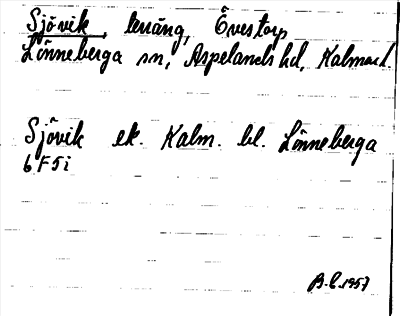 Sjövik, leväng, Övestorp
Lönneberga sn, Aspelands hd, Kalmar l.
Sjövik ek. Kalm. bl. Lönneberga
6F5i
B.L. 1957